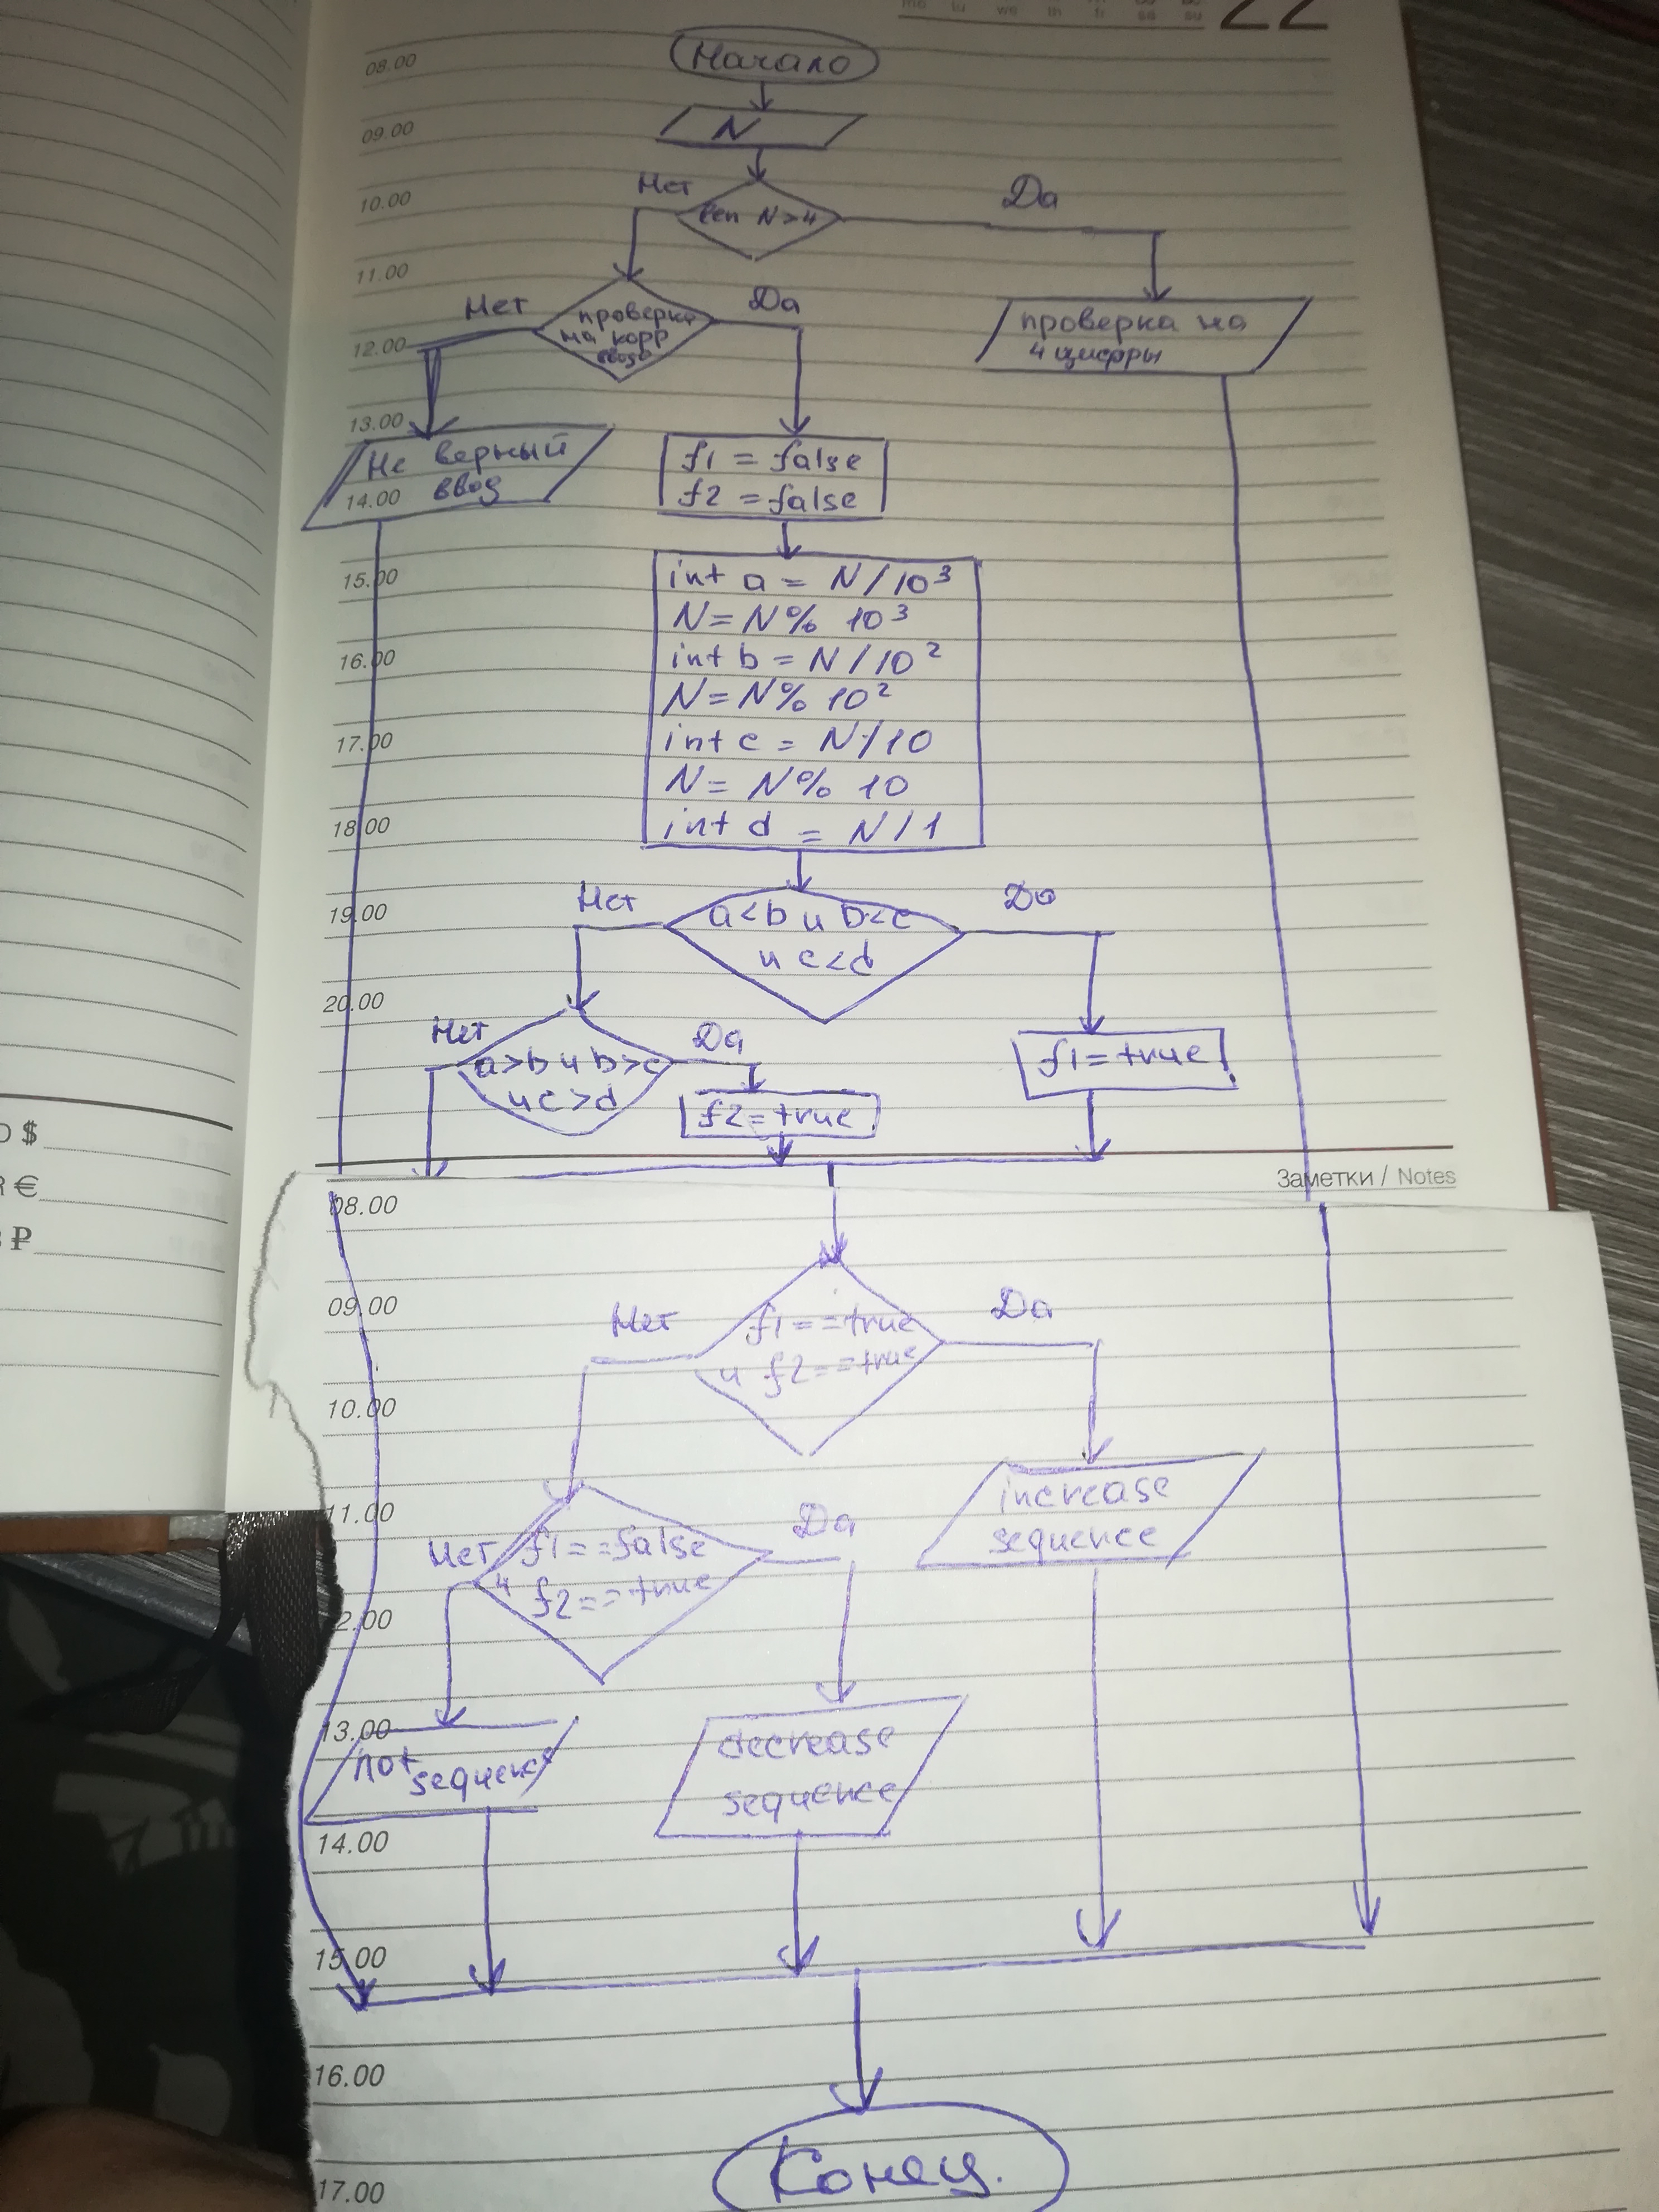 mo tu we th fr sa su 22
08.00
Начало
09.00
N
10.00
Нет
len N>4
Да
11.00
Нет
проверка
на корр
ввод
Да
проверка на
4 цифры
12.00
13.00
Не верный
ввод
14.00
f1 = false
f2 = false
15.00
int a = N/10³
N = N% 10³
16.00
int b = N/10²
N = N% 10²
17.00
int c = N/10
N = N% 10
18.00
int d = N/1
19.00
Нет
a<b и b<c
и c<d
Да
20.00
Нет
a>b и b>c
и c>d
Да
f2=true
f1=true
$
€
₽
Заметки / Notes
08.00
09.00
Нет
f1==true
и f2==true
Да
10.00
11.00
increase
sequence
Нет
f1==false
и f2==true
Да
2.00
13.00
not sequence
decrease
sequence
14.00
15.00
16.00
Конец.
17.00